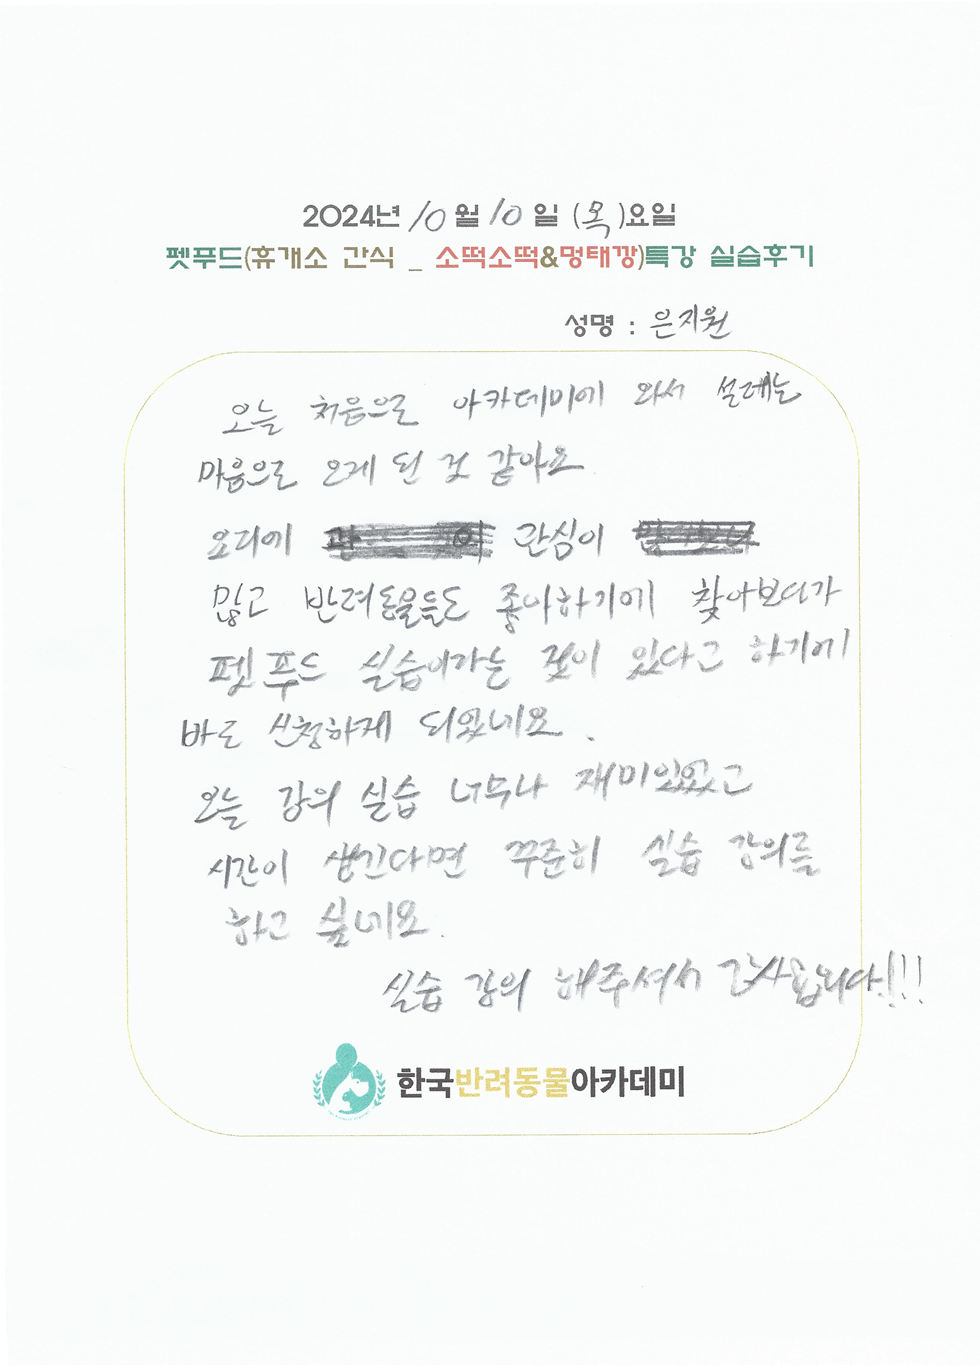 2024년 10월 10일 (목)요일
펫푸드(휴개소 간식 _ 소떡소떡&멍태깡)특강 실습후기
성명 : 은지원
오늘 처음으로 아카데미에 와서 설레는
마음으로 오게 된 것 같아요
요리에 관심이
많고 반려동물들도 좋아하기에 찾아보다가
펫푸드 실습이가는 젖이 있다고 하기에
바로 신청하게 되었네요.
오늘 강의 실습 너무나 재미있었고
시간이 생긴다면 꾸준히 실습 강의를
하고 싶네요.
실습 강의 해주셔서 감사합니다!!!
한국반려동물아카데미